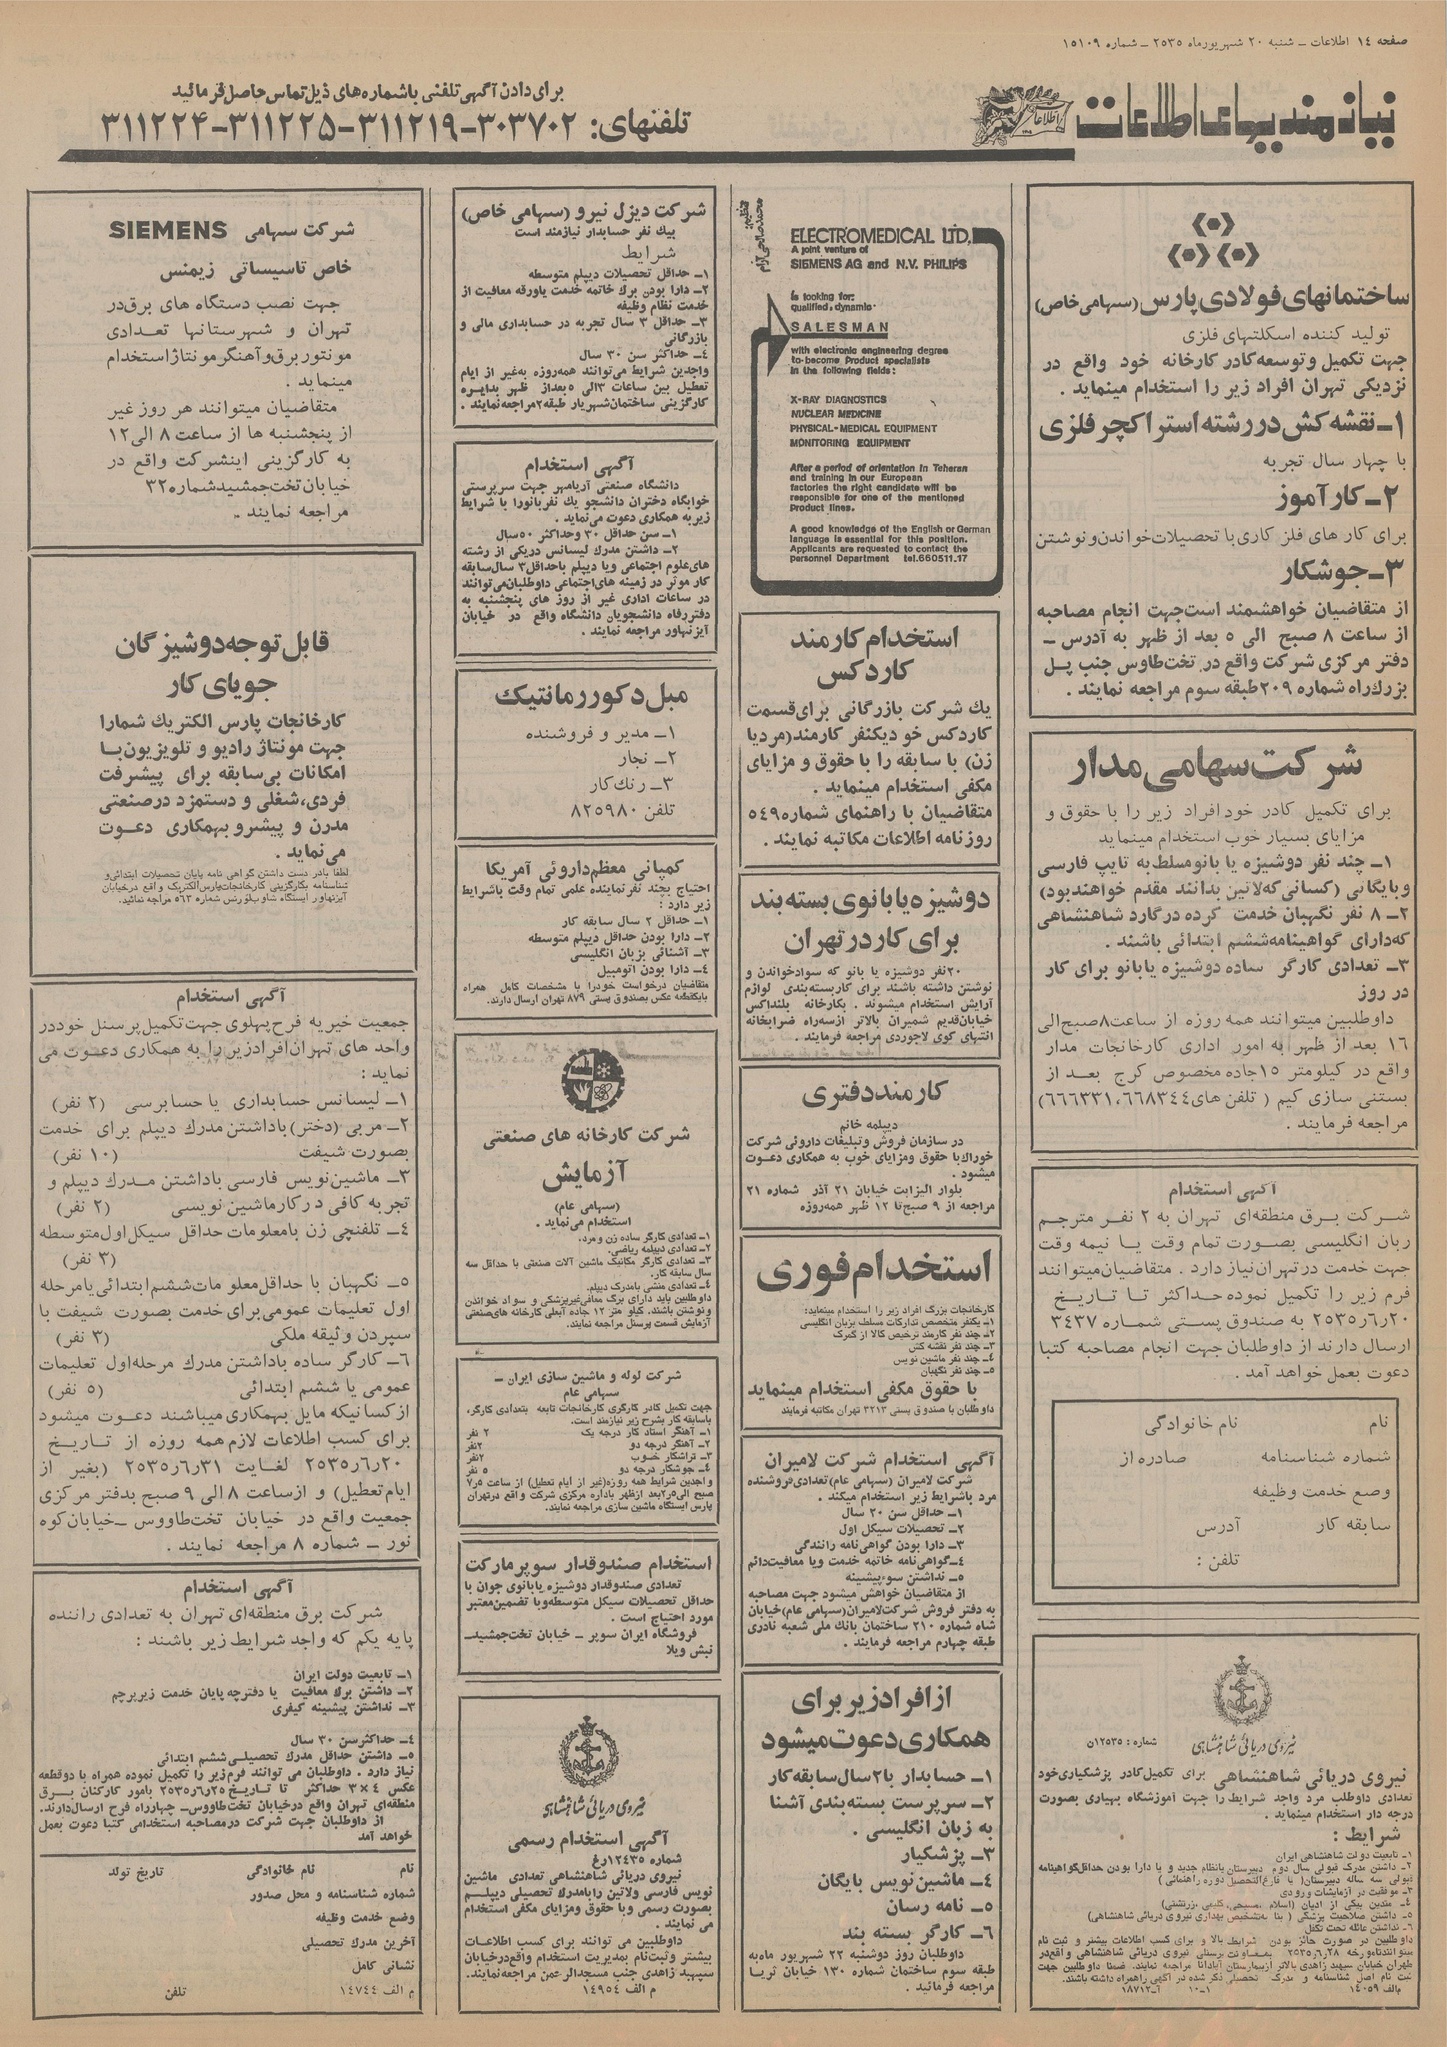 صفحه ۱٤ اطلاعات ـ شنبه ۲۰ شهریورماه ۲۵۳۵ ـ شماره ۱۵۱۰۹
نیازمندیهای اطلاعات
برای دادن آگهی تلفنی باشماره‌های ذیل تماس حاصل فرمائید
تلفنهای: ۳۰۳۷۰۲-۳۱۱۲۱۹-۳۱۱۲۲۵-۳۱۱۲۲۴
ساختمانهای فولادی پارس (سهامی خاص)
تولید کننده اسکلتهای فلزی
جهت تکمیل وتوسعه کادر کارخانه خود واقع در
نزدیکی تهران افراد زیر را استخدام مینماید .
۱ـ نقشه کش در رشته استراکچر فلزی
با چهار سال تجربه
۲ـ کارآموز
برای کار های فلز کاری با تحصیلات خواندن و نوشتن
۳ـ جوشکار
از متقاضیان خواهشمند است جهت انجام مصاحبه
از ساعت ۸ صبح الی ۵ بعد از ظهر به آدرس ـ
دفتر مرکزی شرکت واقع در تخت‌طاوس جنب پل
بزرك‌راه شماره ۲۰۹ طبقه سوم مراجعه نمایند .
شرکت سهامی مدار
برای تکمیل کادر خود افراد زیر را با حقوق و
مزایای بسیار خوب استخدام مینماید
۱ـ چند نفر دوشیزه یا بانو مسلط به تایپ فارسی
و بایگانی (کسانی که لاتین بدانند مقدم خواهند بود)
۲ـ ۸ نفر نگهبان خدمت کرده در گارد شاهنشاهی
که دارای گواهینامه ششم ابتدائی باشند .
۳ـ تعدادی کارگر ساده دوشیزه یا بانو برای کار
در روز
داوطلبین میتوانند همه روزه از ساعت ۸ صبح الی
۱۶ بعد از ظهر به امور اداری کارخانجات مدار
واقع در کیلومتر ۱۵ جاده مخصوص کرج بعد از
بستنی سازی کیم ( تلفن های ۶۶۸۳۴۴،۶۶۶۳۳۱)
مراجعه فرمایند .
آگهی استخدام
شرکت برق منطقه‌ای تهران به ۲ نفر مترجم
زبان انگلیسی بصورت تمام وقت یا نیمه وقت
جهت خدمت در تهران نیاز دارد . متقاضیان میتوانند
فرم زیر را تکمیل نموده حداکثر تا تاریخ
۲۰ر۶ر۲۵۳۵ به صندوق پستی شماره ۳۴۳۷
ارسال دارند از داوطلبان جهت انجام مصاحبه کتبا
دعوت بعمل خواهد آمد .
نام نام خانوادگی
شماره شناسنامه صادره از
وضع خدمت وظیفه
سابقه کار آدرس
تلفن :
نیروی دریائی شاهنشاهی
شماره : ۱۲۵۳۵ن
نیروی دریائی شاهنشاهی برای تکمیل کادر پزشکیاری خود
تعدادی داوطلب مرد واجد شرایط را جهت آموزشگاه بهیاری بصورت
درجه دار استخدام مینماید .
شرایط :
۱ـ تابعیت دولت شاهنشاهی ایران
۲ـ داشتن مدرک قبولی سال دوم دبیرستان بانظام جدید و یا دارا بودن حداقل گواهینامه
قبولی سه ساله دبیرستان( یا فارغ‌التحصیل دوره راهنمائی )
۳ـ موفقیت در آزمایشات ورودی
٤ـ متدین بیکی از ادیان (اسلام ،مسیحی، کلیمی ،زرتشتی)
۵ـ داشتن صلاحیت پزشکی ( بنا به‌تشخیص بهداری نیروی دریائی شاهنشاهی)
۶ـ نداشتن عائله تحت تکفل
داوطلبین در صورت حائز بودن شرایط بالا و برای کسب اطلاعات بیشتر و ثبت نام
میتوانند تا مورخه ۲۸ر۶ر۲۵۳۵ بمعاونت پرسنلی نیروی دریائی شاهنشاهی واقع در
طهران خیابان سپهبد زاهدی بالاتر از بیمارستان آپادانا مراجعه نمایند. ضمنا داوطلبین جهت
ثبت نام اصل شناسنامه و مدرک تحصیلی ذکر شده در آگهی را همراه داشته باشند.
م‌الف ۱۴۰۵۹ ۱ـ۱۰ آـ۱۸۷۱۲
ELECTROMEDICAL LTD,
A joint venture of
SIEMENS AG and N.V. PHILIPS
is looking for:
qualified, dynamic
SALESMAN
with electronic engineering degree
to-become Product specialists
in the following fields:
X-RAY DIAGNOSTICS
NUCLEAR MEDICINE
PHYSICAL-MEDICAL EQUIPMENT
MONITORING EQUIPMENT
After a period of orientation in Teheran
and training in our European
factories the right candidate will be
responsible for one of the mentioned
Product lines.
A good knowledge of the English or German
language is essential for this position.
Applicants are requested to contact the
personnel Department tel.660511.17
استخدام کارمند
کاردکس
یك شرکت بازرگانی برای قسمت
کاردکس خو دیکنفر کارمند (مرد یا
زن) با سابقه را با حقوق و مزایای
مکفی استخدام مینماید .
متقاضیان با راهنمای شماره ۵۴۹
روزنامه اطلاعات مکاتبه نمایند .
دوشیزه یا بانوی بسته بند
برای کار در تهران
۲۰نفر دوشیزه یا بانو که سوادخواندن و
نوشتن داشته باشند برای کاربسته‌بندی لوازم
آرایش استخدام میشوند . بکارخانه بلنداکس
خیابان‌قدیم شمیران بالاتر ازسه‌راه ضرابخانه
انتهای کوی لاجوردی مراجعه فرمایند .
کارمند دفتری
دیپلمه خانم
در سازمان فروش وتبلیغات داروئی شرکت
خوراك‌با حقوق ومزایای خوب به همکاری دعوت
میشود .
بلوار الیزابت خیابان ۲۱ آذر شماره ۲۱
مراجعه از ۹ صبح تا ۱۲ ظهر همه‌روزه
استخدام فوری
کارخانجات بزرگ افراد زیر را استخدام مینماید:
۱ـ یکنفر متخصص تدارکات مسلط بزبان انگلیسی
۲ـ چند نفر کارمند ترخیص کالا از گمرک
۳ـ چند نفر نقشه کش
٤ـ چند نفر ماشین نویس
۵ـ چند نفر نگهبان
با حقوق مکفی استخدام مینماید
داوطلبان با صندوق پستی ۳۲۱۳ تهران مکاتبه فرمایند
آگهی استخدام شرکت لامیران
شرکت لامیران (سهامی عام) تعدادی فروشنده
مرد باشرایط زیر استخدام میکند .
۱ـ حداقل سن ۲۰ سال
۲ـ تحصیلات سیکل اول
۳ـ دارا بودن گواهی‌نامه رانندگی
٤ـ گواهی‌نامه خاتمه خدمت ویا معافیت‌دائم
۵ـ نداشتن سوءپیشینه
از متقاضیان خواهش میشود جهت مصاحبه
به دفتر فروش شرکت‌لامیران(سهامی عام)خیابان
شاه شماره ۲۱۰ ساختمان بانك ملی شعبه نادری
طبقه چهارم مراجعه فرمایند .
از افراد زیر برای
همکاری دعوت میشود
۱ـ حسابدار با ۲سال سابقه کار
۲ـ سرپرست بسته بندی آشنا
به زبان انگلیسی .
۳ـ پزشکیار
٤ـ ماشین‌نویس بایگان
۵ـ نامه رسان
۶ـ کارگر بسته بند
داوطلبان روز دوشنبه ۲۲ شهریور ماه به
طبقه سوم ساختمان شماره ۱۳۰ خیابان ثریا
مراجعه فرمائید .
شرکت دیزل نیرو (سهامی خاص)
بیك نفر حسابدار نیازمند است
شرایط
۱ـ حداقل تحصیلات دیپلم متوسطه
۲ـ دارا بودن برك خاتمه خدمت یاورقه معافیت از
خدمت نظام وظیفه
۳ـ حداقل ۳ سال تجربه در حسابداری مالی و
بازرگانی
٤ـ حداکثر سن ۳۰ سال
واجدین شرایط می‌توانند همه‌روزه به‌غیر از ایام
تعطیل بین ساعات ۳الی ۵بعداز ظهر بدایره
کارگزینی ساختمان‌شهریار طبقه۲مراجعه‌نمایند .
آگهی استخدام
دانشگاه صنعتی آریامهر جهت سرپرستی
خوابگاه دختران دانشجو یك نفربانورا با شرایط
زیر به همکاری دعوت می‌نماید .
۱ـ سن حداقل ۳۰ وحداکثر ۵۰سال
۲ـ داشتن مدرك لیسانس دریکی از رشته
های‌علوم اجتماعی ویا دیپلم باحداقل۳سال‌سابقه
کار موثر در زمینه های‌اجتماعی داوطلبان‌می‌توانند
در ساعات اداری غیر از روز های پنجشنبه به
دفتررفاه دانشجویان دانشگاه واقع در خیابان
آیزنهاور مراجعه نمایند .
مبل دکور رمانتیك
۱ـ مدیر و فروشنده
۲ـ نجار
۳ـ رنك کار
تلفن ۸۲۵۹۸۰
کمپانی معظم داروئی آمریکا
احتیاج بچند نفر نماینده علمی تمام وقت باشرایط
زیر دارد :
۱ـ حداقل ۲ سال سابقه کار
۲ـ دارا بودن حداقل دیپلم متوسطه
۳ـ آشنائی بزبان انگلیسی
٤ـ دارا بودن اتومبیل
متقاضیان درخواست خودرا با مشخصات کامل همراه
بایکقطعه عکس بصندوق پستی ۸۷۹ تهران ارسال دارند.
شرکت کارخانه های صنعتی
آزمایش
(سهامی عام)
استخدام می‌نماید .
۱ـ تعدادی کارگر ساده زن و مرد.
۲ـ تعدادی دیپلمه ریاضی.
۳ـ تعدادی کارگر مکانیک ماشین آلات صنعتی با حداقل سه
سال سابقه کار.
٤ـ تعدادی منشی بامدرك دیپلم.
داوطلبین باید دارای برگ معافی‌غیرپزشکی و سواد خواندن
و نوشتن باشند. کیلو متر ۱۲ جاده آبعلی کارخانه های‌صنعتی
آزمایش قسمت پرسنل مراجعه نمایند.
شرکت لوله و ماشین سازی ایران ـ
سهامی عام
جهت تکمیل کادر کارگری کارخانجات تابعه بتعدادی کارگر،
باسابقه کار بشرح زیر نیازمند است.
۱ـ آهنگر استاد کار درجه یک ۲ نفر
۲ـ آهنگر درجه دو ۲نفر
۳ـ تراشکار خوب ۲نفر
٤ـ جوشکار درجه دو ۵ نفر
واجدین شرایط همه روزه(غیر از ایام تعطیل) از ساعت ۷ر۵
صبح الی۲ر۵بعد ازظهر باداره مرکزی شرکت واقع درتهران
پارس ایستگاه ماشین سازی مراجعه نمایند.
استخدام صندوقدار سوپرمارکت
تعدادی صندوقدار دوشیزه یابانوی جوان با
حداقل تحصیلات سیکل متوسطه‌وبا تضمین‌معتبر
مورد احتیاج است .
فروشگاه ایران سوپر ـ خیابان تخت‌جمشیدـ
نبش ویلا
نیروی دریائی شاهنشاهی
آگهی استخدام رسمی
شماره ۱۲۴۳۵رغ
نیروی دریائی شاهنشاهی تعدادی ماشین
نویس فارسی ولاتین رابامدرك تحصیلی دیپلم
بصورت رسمی وبا حقوق ومزایای مکفی استخدام
می نمایند .
داوطلبین می توانند برای کسب اطلاعات
بیشتر وثبت‌نام بمدیریت استخدام واقع درخیابان
سپهبد زاهدی جنب مسجدالرحمن مراجعه‌نمایند.
م الف ۱۴۹۵۴
شرکت سهامی SIEMENS
خاص تاسیساتی زیمنس
جهت نصب دستگاه های برق در
تهران و شهرستانها تعدادی
مونتور برق و آهنگر مونتاژ استخدام
مینماید .
متقاضیان میتوانند هر روز غیر
از پنجشنبه ها از ساعت ۸ الی ۱۲
به کارگزینی اینشرکت واقع در
خیابان تخت‌جمشید شماره ۳۲
مراجعه نمایند .
قابل توجه دوشیزگان
جویای کار
کارخانجات پارس الکتریك شمارا
جهت مونتاژ رادیو و تلویزیون با
امکانات بی‌سابقه برای پیشرفت
فردی، شغلی و دستمزد در صنعتی
مدرن و پیشرو بهمکاری دعوت
می‌نماید .
لطفا بادر دست داشتن گواهی نامه پایان تحصیلات ابتدائی و
شناسنامه بکارگزینی کارخانجات‌پارس‌الکتریک واقع درخیابان
آیزنهاور ایستگاه شادبلورنس شماره ۵۶۳ مراجعه نمائید.
آگهی استخدام
جمعیت خیریه فرح پهلوی جهت تکمیل پرسنل خود در
واحد های تهران افراد زیر را به همکاری دعوت می
نماید :
۱ـ لیسانس حسابداری یا حسابرسی (۲ نفر)
۲ـ مربی (دختر) باداشتن مدرك دیپلم برای خدمت
بصورت شیفت (۱۰ نفر)
۳ـ ماشین‌نویس فارسی باداشتن مدرك دیپلم و
تجربه کافی در کار ماشین نویسی (۲ نفر)
٤ـ تلفنچی زن بامعلومات حداقل سیکل اول متوسطه
(۳ نفر)
۵ـ نگهبان با حداقل معلومات ششم ابتدائی یا مرحله
اول تعلیمات عمومی برای خدمت بصورت شیفت با
سپردن وثیقه ملکی (۳ نفر)
۶ـ کارگر ساده باداشتن مدرك مرحله اول تعلیمات
عمومی یا ششم ابتدائی (۵ نفر)
از کسانیکه مایل بهمکاری میباشند دعوت میشود
برای کسب اطلاعات لازم همه روزه از تاریخ
۲۰ر۶ر۲۵۳۵ لغایت ۳۱ر۶ر۲۵۳۵ (بغیر از
ایام تعطیل) و از ساعت ۸ الی ۹ صبح بدفتر مرکزی
جمعیت واقع در خیابان تخت‌طاووس ـ خیابان کوه
نور ـ شماره ۸ مراجعه نمایند .
آگهی استخدام
شرکت برق منطقه‌ای تهران به تعدادی راننده
پایه یکم که واجد شرایط زیر باشند :
۱ـ تابعیت دولت ایران
۲ـ داشتن برك معافیت یا دفترچه پایان خدمت زیرپرچم
۳ـ نداشتن پیشینه کیفری
٤ـ حداکثرسن ۳۰ سال
۵ـ داشتن حداقل مدرك تحصیلی ششم ابتدائی
نیاز دارد . داوطلبان می توانند فرم‌زیر را تکمیل نموده همراه با دوقطعه
عکس ۴ × ۳ حداکثر تا تاریخ ۲۵ر۶ر۲۵۳۵ بامور کارکنان برق
منطقه‌ای تهران واقع درخیابان تخت‌طاووس‌ـ چهارراه فرح ارسال‌دارند.
از داوطلبان جهت شرکت درمصاحبه استخدامی کتبا دعوت بعمل
خواهد آمد
نام نام خانوادگی تاریخ تولد
شماره شناسنامه و محل صدور
وضع خدمت وظیفه
آخرین مدرك تحصیلی
نشانی کامل
م الف ۱۴۷۴۴ تلفن